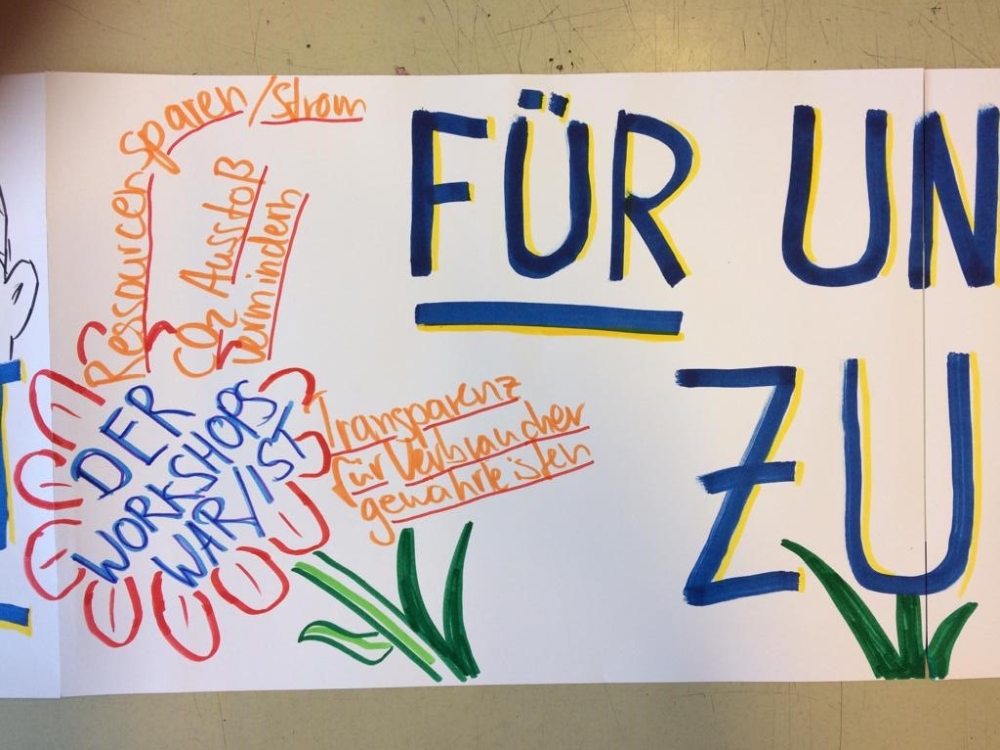 Ressourcen sparen/Strom
CO2 Ausstoß
vermindern
FÜR UN
ZU
DER
WORKSHOPS
WAR/IST
Transparenz
für Verbraucher
gewährleisten